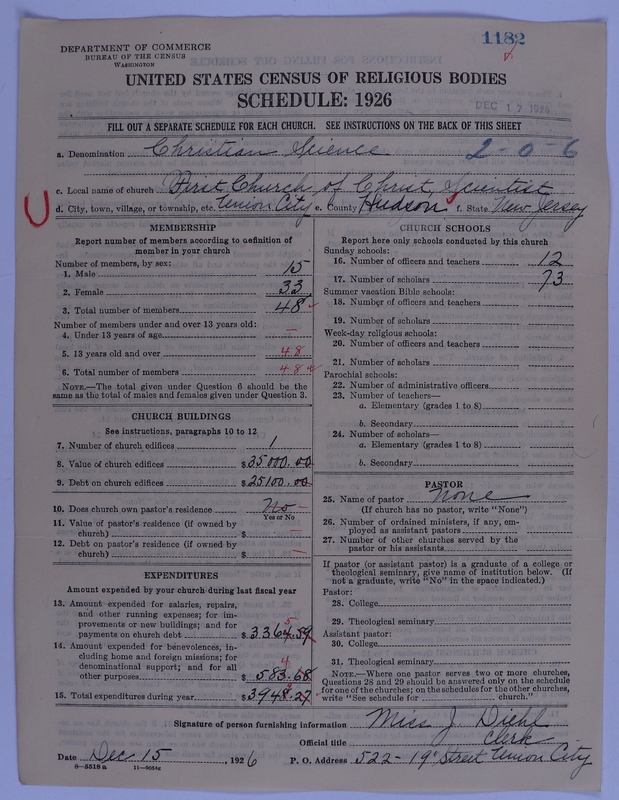 1182
DEPARTMENT OF COMMERCE
BUREAU OF THE CENSUS
WASHINGTON
UNITED STATES CENSUS OF RELIGIOUS BODIES
SCHEDULE: 1926
DEC 17 1926
FILL OUT A SEPARATE SCHEDULE FOR EACH CHURCH. SEE INSTRUCTIONS ON THE BACK OF THIS SHEET
a. Denomination Christian Science 2-0-6
c. Local name of church First Church of Christ, Scientist
d. City, town, village, or township, etc. Union City e. County Hudson f. State New Jersey
MEMBERSHIP
Report number of members according to definition of
member in your church
Number of members, by sex:
1. Male 15
2. Female 33
3. Total number of members 48
Number of members under and over 13 years old:
4. Under 13 years of age —
5. 13 years old and over 48
6. Total number of members 48
NOTE.—The total given under Question 6 should be the
same as the total of males and females given under Question 3.
CHURCH BUILDINGS
See instructions, paragraphs 10 to 12
7. Number of church edifices 1
8. Value of church edifices $35000.00
9. Debt on church edifices $25100.00
10. Does church own pastor's residence No —
Yes or No
11. Value of pastor's residence (if owned by
church) $ —
12. Debt on pastor's residence (if owned by
church) $ —
EXPENDITURES
Amount expended by your church during last fiscal year
13. Amount expended for salaries, repairs,
and other running expenses; for im-
provements or new buildings; and for
payments on church debt $3364.59
5
14. Amount expended for benevolences, in-
cluding home and foreign missions; for
denominational support; and for all
other purposes $583.68
4
15. Total expenditures during year $3948.27
CHURCH SCHOOLS
Report here only schools conducted by this church
Sunday schools:
16. Number of officers and teachers 12
17. Number of scholars 73
Summer vacation Bible schools:
18. Number of officers and teachers
19. Number of scholars
Week-day religious schools:
20. Number of officers and teachers
21. Number of scholars
Parochial schools:
22. Number of administrative officers
23. Number of teachers—
a. Elementary (grades 1 to 8)
b. Secondary
24. Number of scholars—
a. Elementary (grades 1 to 8)
b. Secondary
PASTOR
25. Name of pastor None
(If church has no pastor, write "None")
26. Number of ordained ministers, if any, em-
ployed as assistant pastors
27. Number of other churches served by the
pastor or his assistants
If pastor (or assistant pastor) is a graduate of a college or
theological seminary, give name of institution below. (If
not a graduate, write "No" in the space indicated.)
Pastor:
28. College
29. Theological seminary
Assistant pastor:
30. College
31. Theological seminary
NOTE.—Where one pastor serves two or more churches,
Questions 28 and 29 should be answered only on the schedule
for one of the churches; on the schedules for the other churches,
write "See schedule for church."
Signature of person furnishing information Miss J. Diehl
Official title Clerk
Date Dec 15, 1926 P. O. Address 522-19" Street Union City
8-5518a 11-9054c